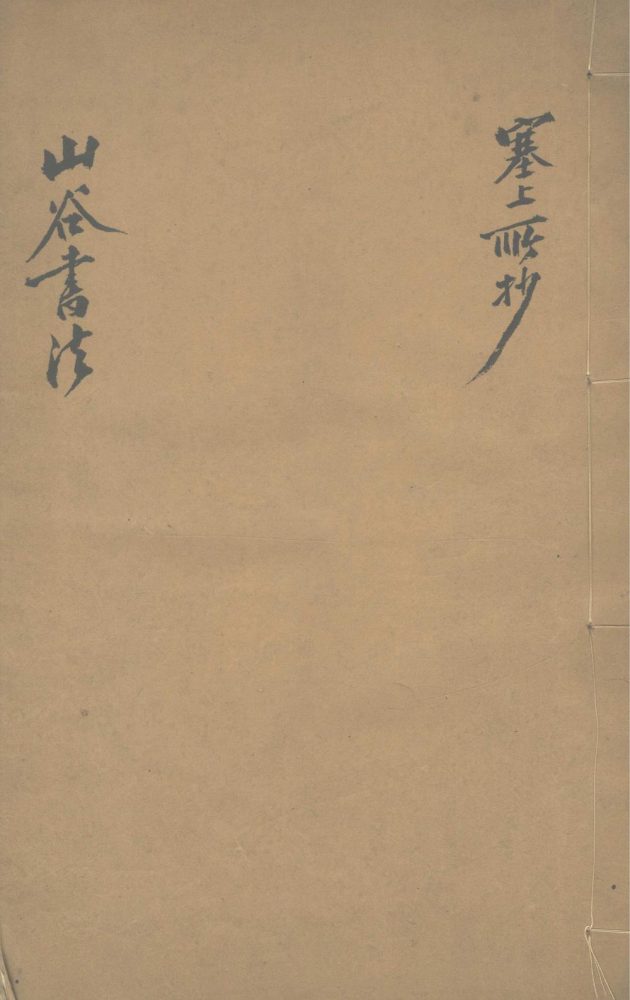 塞上所抄
山谷書法